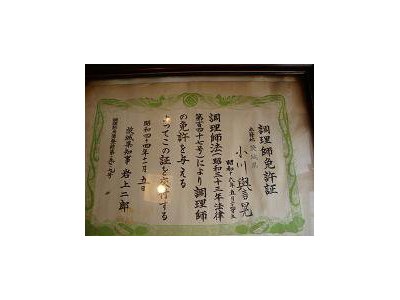 調理師免許証
本籍地 茨城県
小川
昭和十八年五月
調理師法(昭和三十三年法律
第百四十七号)により調理師
の免許を与える
よってこの証を交付する
昭和四十四年十二月五日
茨城県知事 岩上二郎